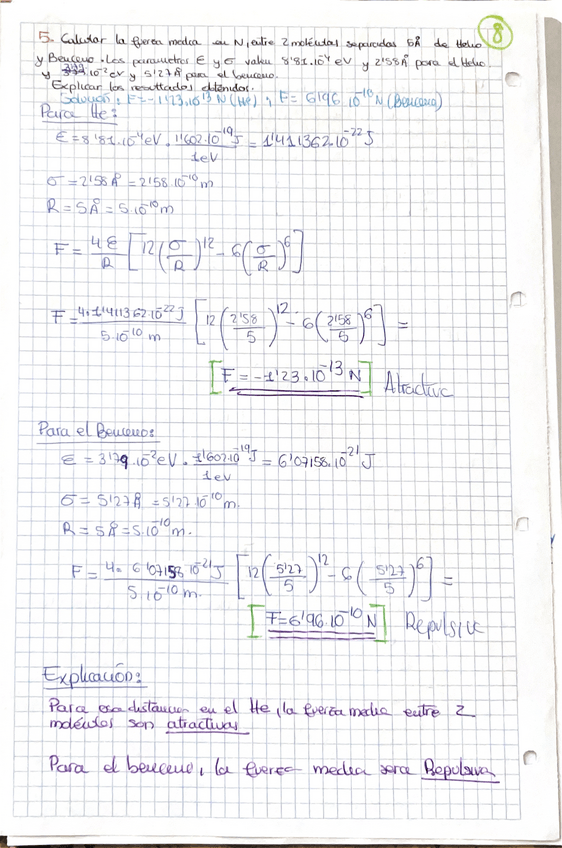 5. Calcular la fuerza media en N, entre 2 moléculas separadas 5Å de Helio
8
y Benceno. Los parametros ε y σ valen 8'81.10⁻⁴eV y 2'58Å para el Helio
y 3'79.10⁻²eV y 5'27Å para el benceno.
Explicar los resultados obtenidos.
Solución: F=-1'23.10⁻¹³N (He), F= 6'96.10⁻¹⁰N (Benceno)
Para He:
ε = 8'81.10⁻⁴eV . 1'602.10⁻¹⁹J / 1eV = 1'411362.10⁻²²J
σ = 2'58Å = 2'58.10⁻¹⁰m
R = 5Å = 5.10⁻¹⁰m
F = 4ε/R [12(σ/R)¹² - 6(σ/R)⁶]
F = 4.1'411362.10⁻²²J / 5.10⁻¹⁰m [12(2'58/5)¹² - 6(2'58/5)⁶] =
[F = -1'23.10⁻¹³N] Atractiva
Para el Benceno:
ε = 3'79.10⁻²eV . 1'602.10⁻¹⁹J / 1eV = 6'07158.10⁻²¹J
σ = 5'27Å = 5'27.10⁻¹⁰m.
R = 5Å = 5.10⁻¹⁰m.
F = 4.6'07158.10⁻²¹J / 5.10⁻¹⁰m. [12(5'27/5)¹² - 6(5'27/5)⁶] =
[F = 6'96.10⁻¹⁰N] Repulsiva
Explicación:
Para esa distancia en el He, la fuerza media entre 2
moléculas son atractivas
Para el benceno, la fuerza media sera Repulsiva